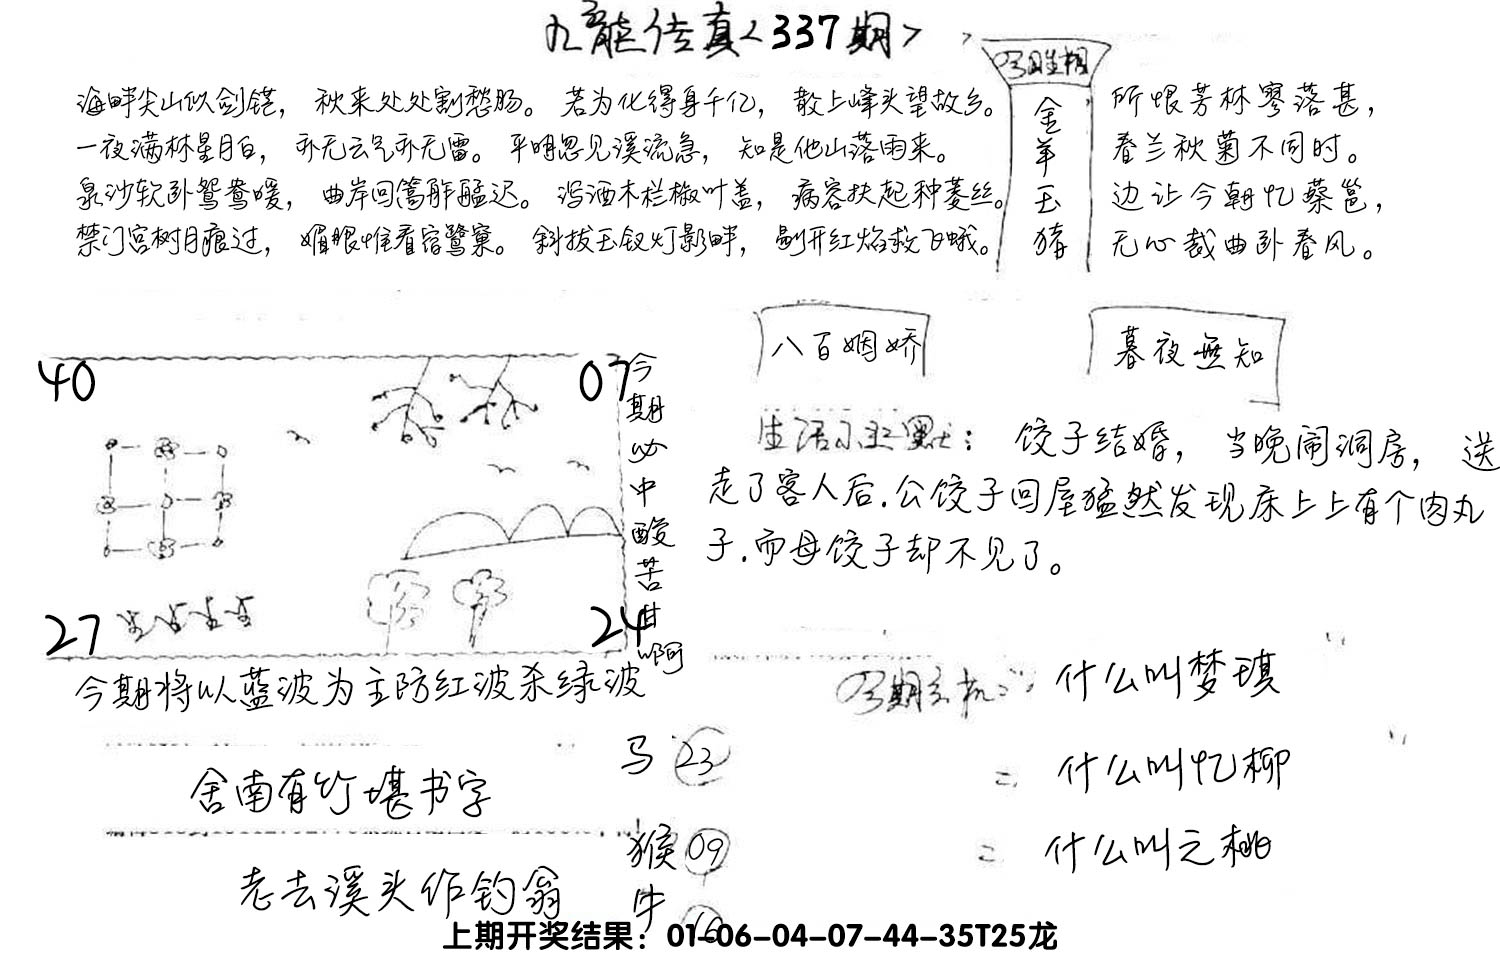 九龙传真<337期>
海畔尖山似剑铓，秋来处处割愁肠。若为化得身千亿，散上峰头望故乡。
一夜满林星月白，亦无云气亦无雷。平明忽见溪流急，知是他山落雨来。
泉沙软卧鸳鸯暖，曲岸回篙舴艋迟。泻酒木栏椒叶盖，病容扶起种菱丝。
禁门宫树月痕过，媚眼惟看宿鹭窠。斜拔玉钗灯影畔，剔开红焰救飞蛾。
今期生相
金羊玉猪
所恨芳林寥落甚，
春兰秋菊不同时。
边让今朝忆蔡邕，
无心裁曲卧春风。
八百姻娇
暮夜無知
40
07
27
24
今期必中酸苦甘啊
生活小幽默：饺子结婚，当晚闹洞房，送
走了客人后.公饺子回屋猛然发现床上上有个肉丸
子.而母饺子却不见了。
今期将以蓝波为主防红波杀绿波
今期玄机：什么叫梦琪
= 什么叫忆柳
= 什么叫之桃
舍南有竹堪书字
老去溪头作钓翁
马 23
猴 09
牛 16
上期开奖结果：01-06-04-07-44-35T25龙